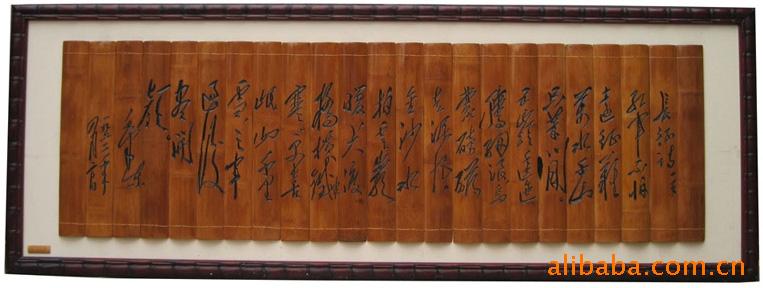 長征詩一首
紅軍不怕
遠征難
萬水千山
只等閒
五嶺逶迤
騰細浪烏
蒙磅礴
走泥丸
金沙水
拍雲崖
暖大渡
橋橫鐵索
寒更喜
岷山千里
雪三軍
過後
盡開
顏
毛澤東
alibaba.com.cn